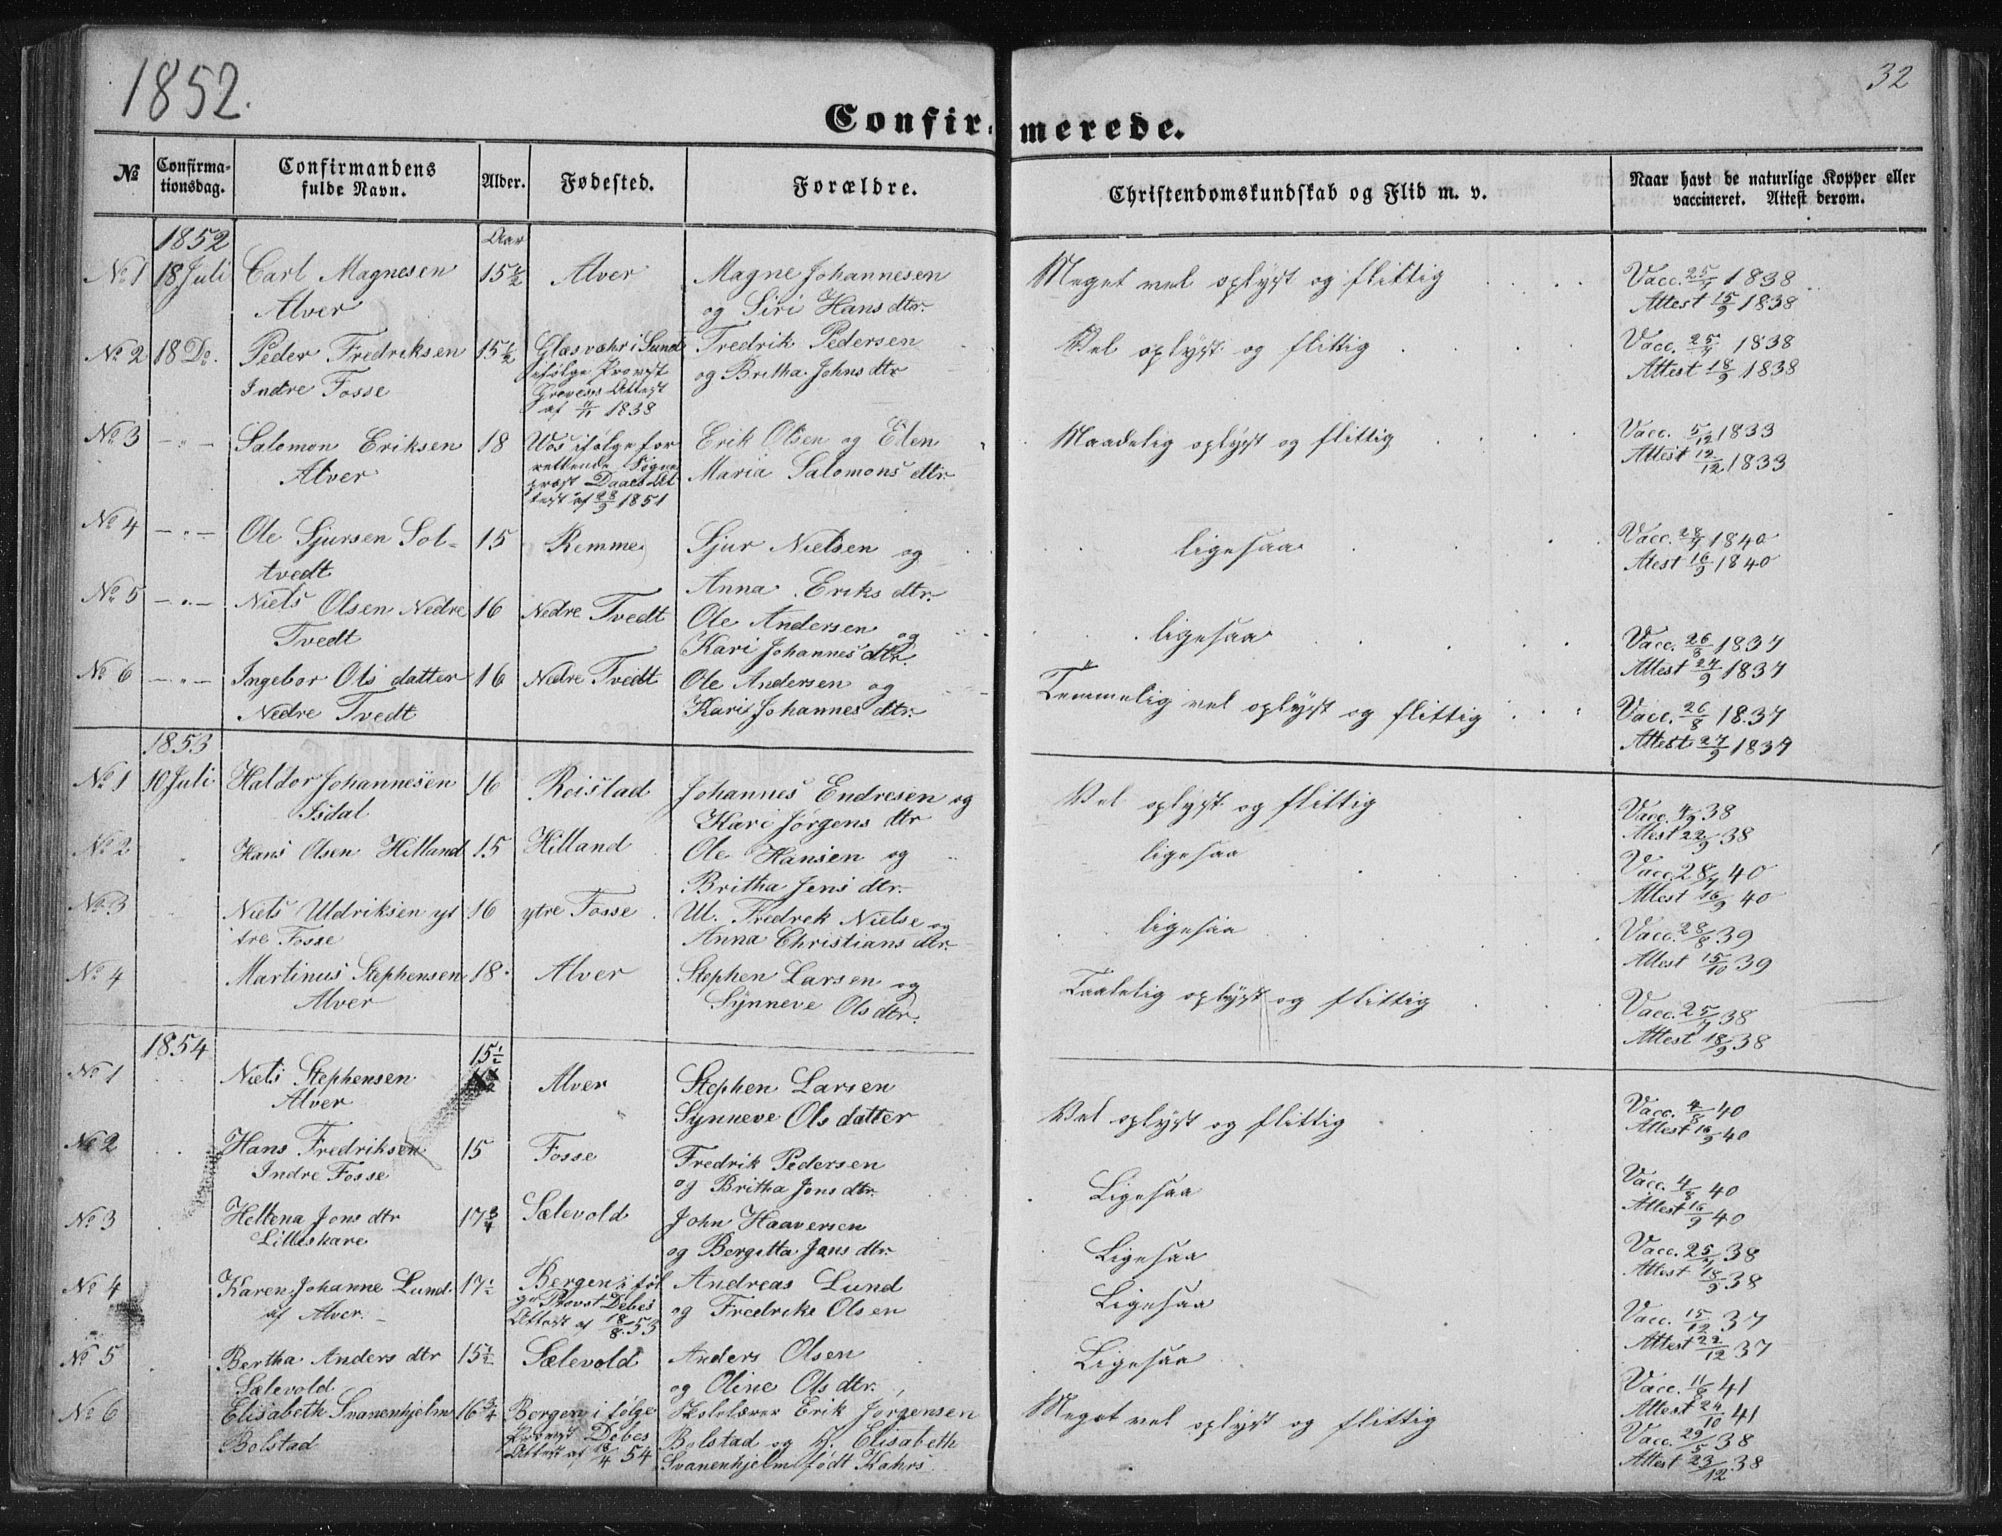 1852.
32
Confir-
merede.
№
Confirma-
tionsdag.
Confirmandens
fulde Navn.
Alder.
Fødested.
Forældre.
Christendomskundskab og Flid m. v.
Naar havt de naturlige Kopper eller
vaccineret. Attest derom.
1852
Aar
No 1 18 Juli Carl Magnesen 15½ Alver Magne Johannesen Meget vel oplyst og flittig Vacc. 25/7 1838
Alver og Siri Hans dtr. Attest 15/9 1838
No 2 18 Do. Peder Fredriksen 15½ Glasvær i Sund Fredrik Pedersen Vel oplyst og flittig Vacc. 25/7 1838
Indre Fosse ifølge Provst og Britha Johns dtr Attest 18/9 1838
Attest
af 1838
No 3 — " — Salomon Eriksen 18 Vos ifølge for Erik Olsen og Elen Maadelig oplyst og flittig Vacc. 5/12 1833
Alver rettende Sogne Maria Salomons dtr. Attest 12/12 1833
præst Daaes At
test af 28/9 1851
No 4 — " — Ole Sjursen Sol- 15 Remme Sjur Nielsen og ligesaa Vacc. 28/7 1840
tvedt Anna Eriks dtr. Atest 16/9 1840
No 5 — " — Niels Olsen Nedre 16 Nedre Tvedt Ole Andersen og ligesaa Vacc. 26/8 1837
Tvedt Kari Johannes dtr. Attest 27/9 1837
No 6 — " — Ingebor Ols datter 16 Nedre Tvedt Ole Andersen og Temmelig vel oplyst og flittig Vacc. 26/8 1837
Nedre Tvedt Kari Johannes dtr. Attest 27/9 1837
1853
No 1 10 Juli Haldor Johannesen 16 Reistad Johannes Endresen og Vel oplyst og flittig Vacc. 4/9 38
Isdal Kari Jørgens dtr Atest 22/9 38
No 2 Hans Olsen Hilland 15 Hilland Ole Hansen og ligesaa Vacc 28/7 40
Britha Jens dtr. Attest 16/9 40
No 3 Niels Uldriksen yt 16 ytre Fosse Ul. Fredrek Nielse og ligesaa Vacc. 28/8 39
tre Fosse Anna Christians dtr. Attest 15/10 39
No 4 Martinus Stephensen 18. Alver Stephen Larsen og Taalelig oplyst og flittig Vacc. 25/7 38
Alver Synneve Ols dtr. Attest 18/9 38
1854
No 1 Niels Stephensen 15½ Alver Stephen Larsen Vel oplyst og flittig Vacc. 4/8 40
Alver Synneve Ols datter Attest 16/9 40
No 2 Hans Fredriksen 15 Fosse Fredrik Pedersen Ligesaa Vacc. 4/8 40
Indre Fosse og Britha Jons dtr. Attest 16/9 40
No 3 Heltena Jons dtr 17¾ Sælevold John Haaversen Ligesaa Vacc. 25/7 38
Litleskare og Bergitta Jans dtr. Attest 18/9 38
No 4 Karen Johanne Lund. 17½ Bergen i føl Andreas Lund Ligesaa Vacc. 15/12 37
af Alver. ge Provst Debes og Fredrike Olsen Attest 22/12 37
Attest af 18/8 53
No 5 Bertha Anders dtr 15½ Sælevold Anders Olsen Ligesaa Vacc. 11/8 41
Sælevold og Oline Ols dtr. Attest 24/10 41
No 6 Elisabeth Svanenhjelm 16¾ Bergen i følge Skolelærer Erik Jørgensen Meget vel oplyst og flittig Vacc. 29/5 38
Bolstad Provst Debes Bolstad og Elisabeth Attest 23/12 38
Attest af 18/4 54 Svanenhjelm født Kahrs